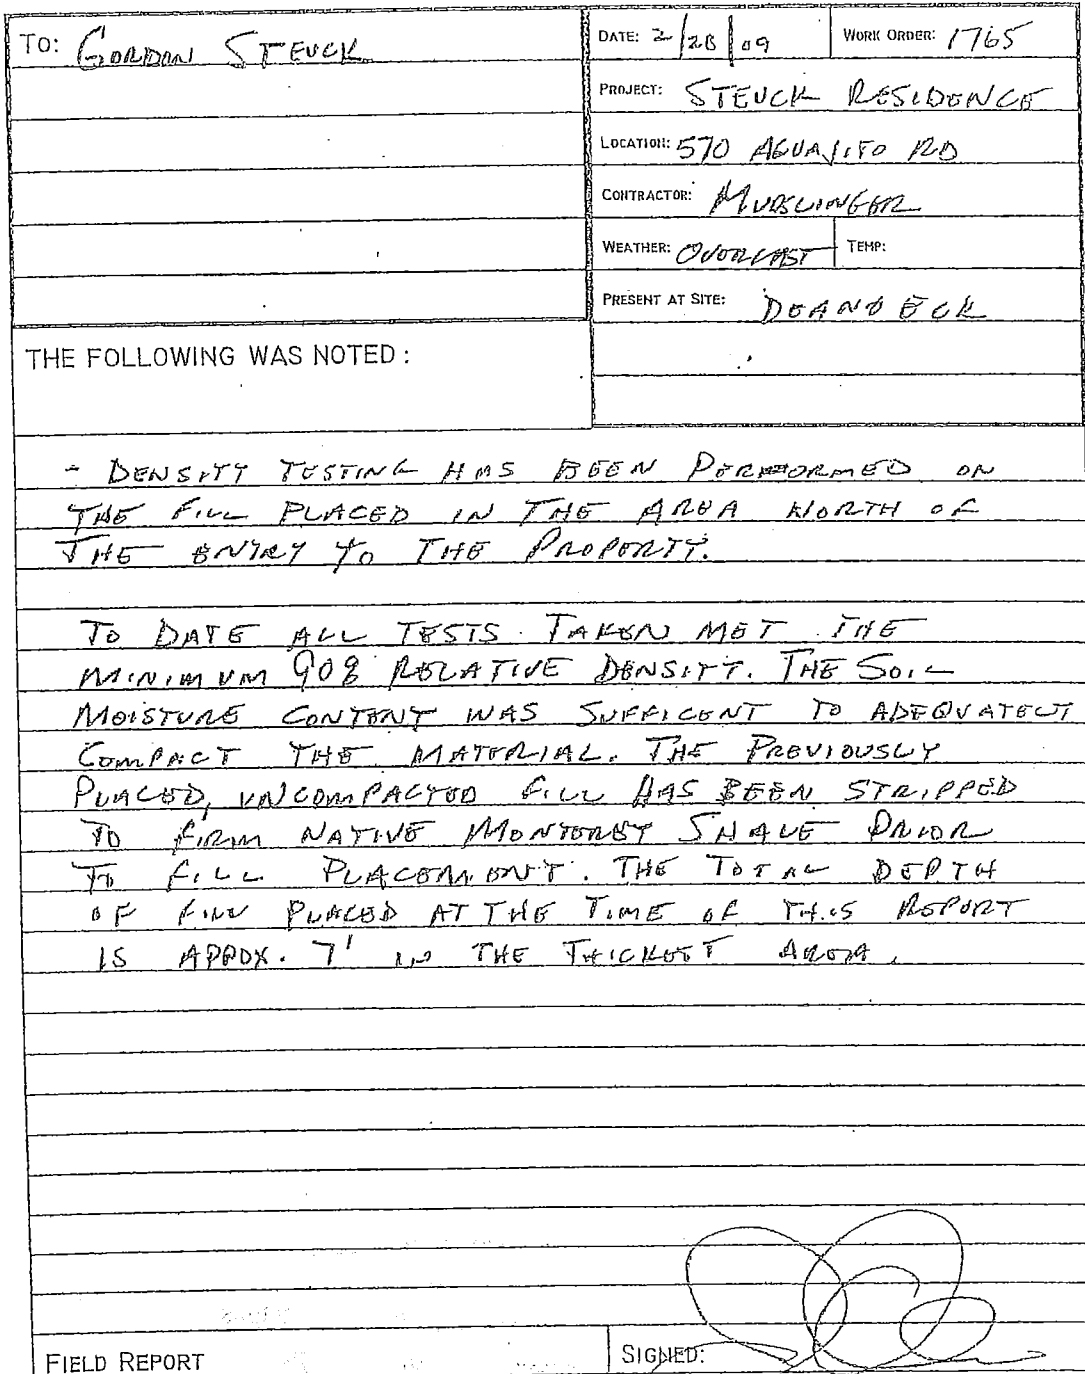 TO: GORDON STEUCK
DATE: 2/28/09
WORK ORDER: 1765
PROJECT: STEUCK RESIDENCE
LOCATION: 570 AGUAJITO RD
CONTRACTOR: MUDSLINGER
WEATHER: OVERCAST
TEMP:
PRESENT AT SITE: DEANO ECK
THE FOLLOWING WAS NOTED :
- DENSITY TESTING HAS BEEN PERFORMED ON
THE FILL PLACED IN THE AREA NORTH OF
THE ENTRY TO THE PROPERTY.
TO DATE ALL TESTS TAKEN MET THE
MINIMUM 90% RELATIVE DENSITY. THE SOIL
MOISTURE CONTENT WAS SUFFICENT TO ADEQUATELY
COMPACT THE MATERIAL. THE PREVIOUSLY
PLACED, UNCOMPACTED FILL HAS BEEN STRIPPED
TO FIRM NATIVE MONTEREY SHALE PRIOR
TO FILL PLACEMENT. THE TOTAL DEPTH
OF FILL PLACED AT THE TIME OF THIS REPORT
IS APPOX. 7' IN THE THICKEST AREA.
FIELD REPORT
SIGNED: